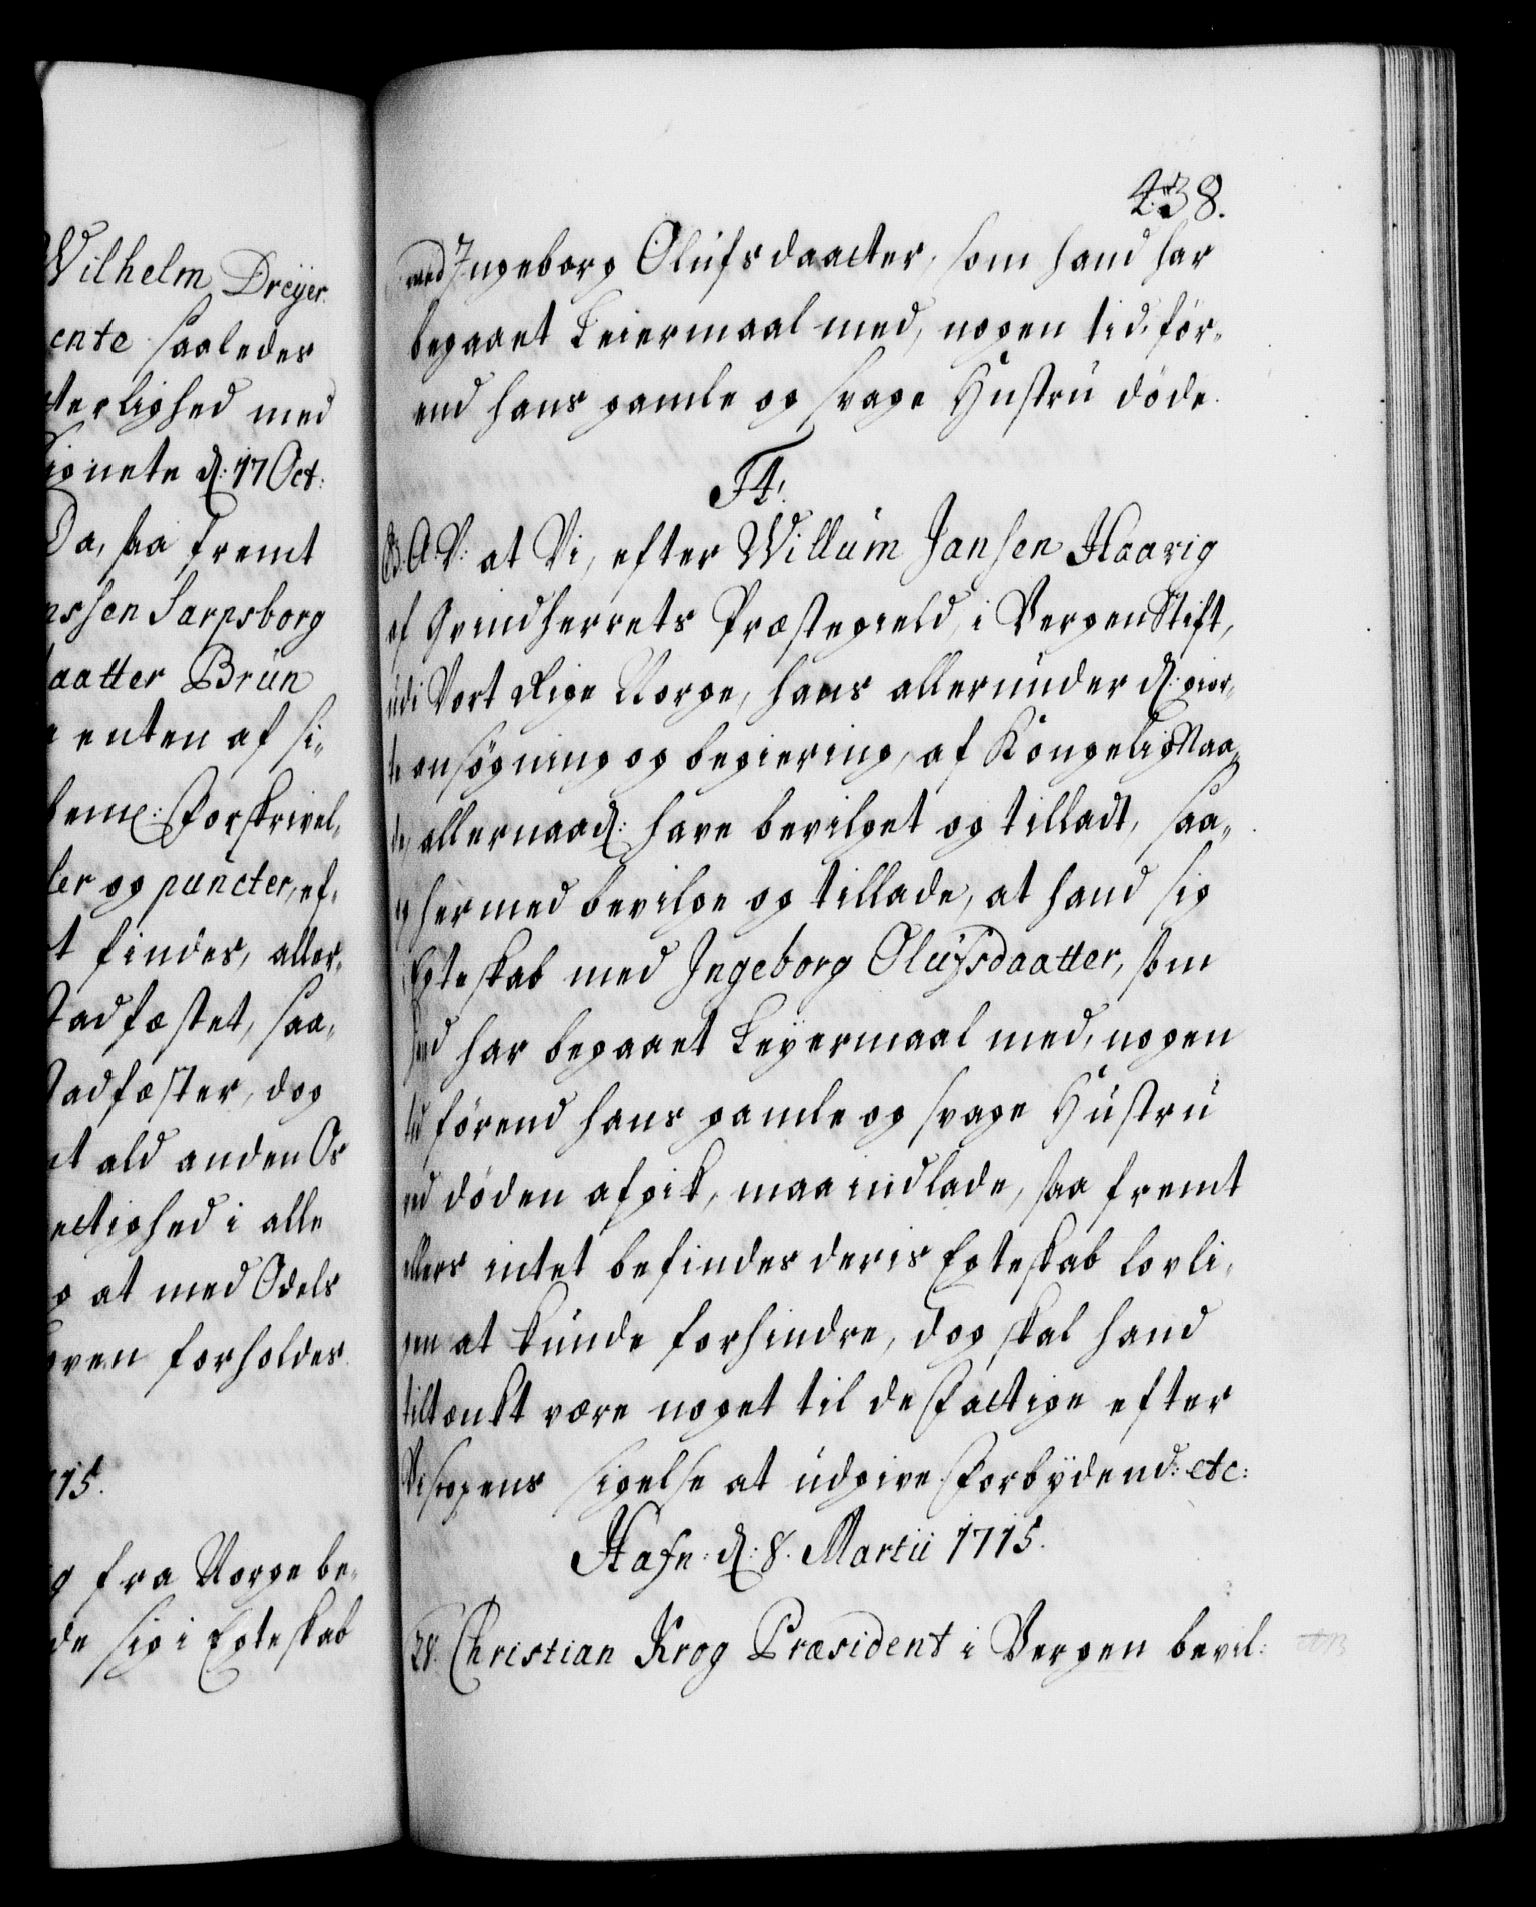 Wilhelm Dreyer
ente saaledes
terlighed med
Signete d: 17 Oct:
Da, saa fremt
nssen Sarpsborg
daatter Brün
enten af si-
bem: Forskrivel-
ler og puncter, ef-
t findes, aller-
Stadfæstet, saa-
Stadfæster, dog
et ald anden Os
ectighed i alle
og at med Odels
Loven forholdes.
1715.
fra Norge be-
de sig i Egteskab
438.
med Ingeborg Olüfsdaatter, som hand har
begaaet Leiermaal med, nogen tid för-
end hans gamle og svage Hüstrü döde.
F4.
G. A. V: at Vi, efter Willüm Jansen Haarig
af Qvindherrets Præstegield, i Bergen Stift,
udi Vort Rige Norge, hans allerunder d: gior-
te ansögning og begiering, af Kongelig Naa-
de, allernaad: have bevilget og tilladt, saa-
og hermed bevilge og tillade, at hand sig
i Egteskab med Ingeborg Olüfsdaatter, som
hand har begaaet Leyermaal med, nogen
tid förend hans gamle og svage Hüstrü
ved döden afgik, maa indlade, saa fremt
ellers intet befindes deris Egteskab lovli-
gen at kunde forhindre, dog skal hand
tiltænkt være noget til de Fattige efter
Biscopens sigelse at udgive. Forbydend: etc:
Hafn: d: 8. Martii 1715.
28. Christian Krog Præsident i Bergen bevil: